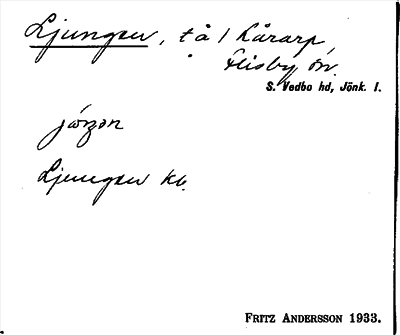 Ljungen, tå / Kårarp,
Flisby sn.
S. Vedbo hd, Jönk. l.
jöŋən
Ljungen kb.
FRITZ ANDERSSON 1933.